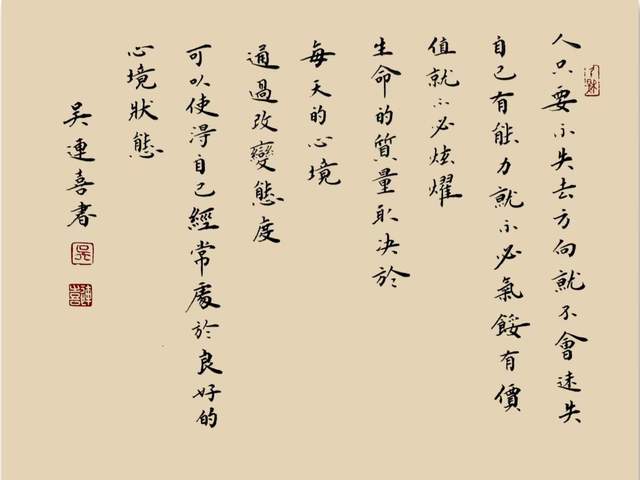 人只要不失去方向就不會迷失
自己有能力就不必氣餒有價
值就不必炫耀
生命的質量取决於
每天的心境
通過改變態度
可以使得自己經常處於良好的
心境狀態
吳連喜書
吳
連喜